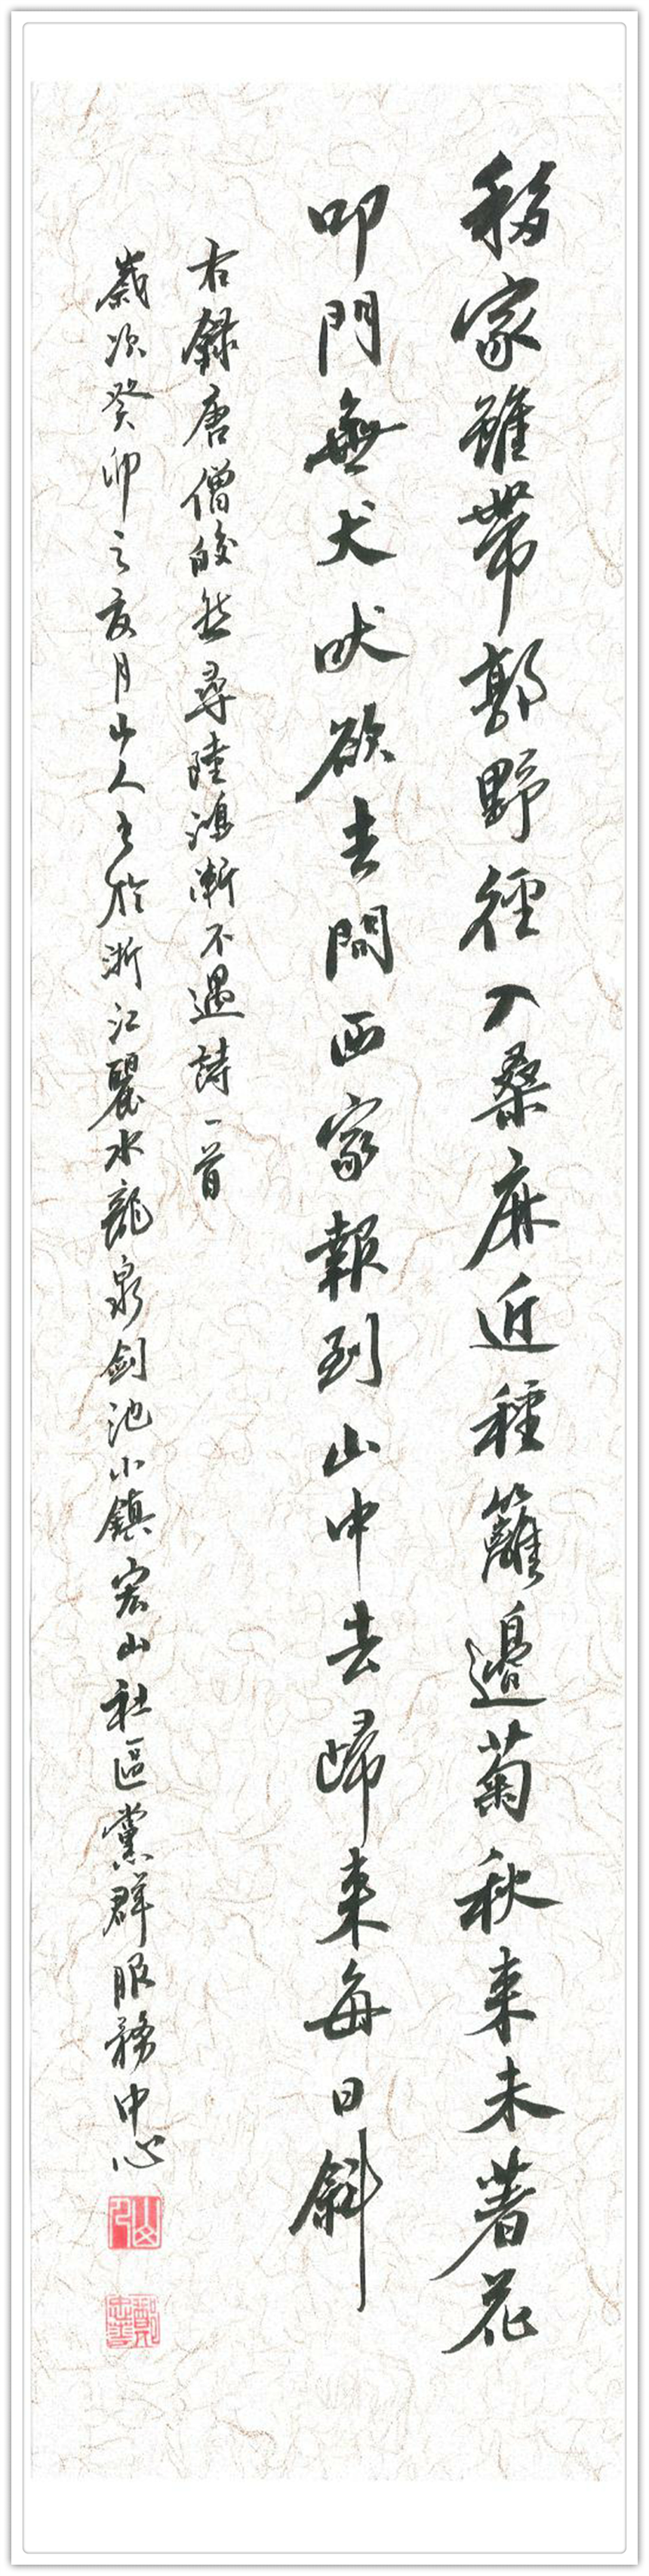 移家雖帶郭野徑入桑麻近種籬邊菊秋来未著花
叩門無犬吠欲去問西家報到山中去歸来每日斜
右録唐僧皎然尋陸鴻漸不遇詩一首
歲次癸卯之夜月山人書於浙江麗水龍泉劍池小鎮宏山社區黨群服務中心